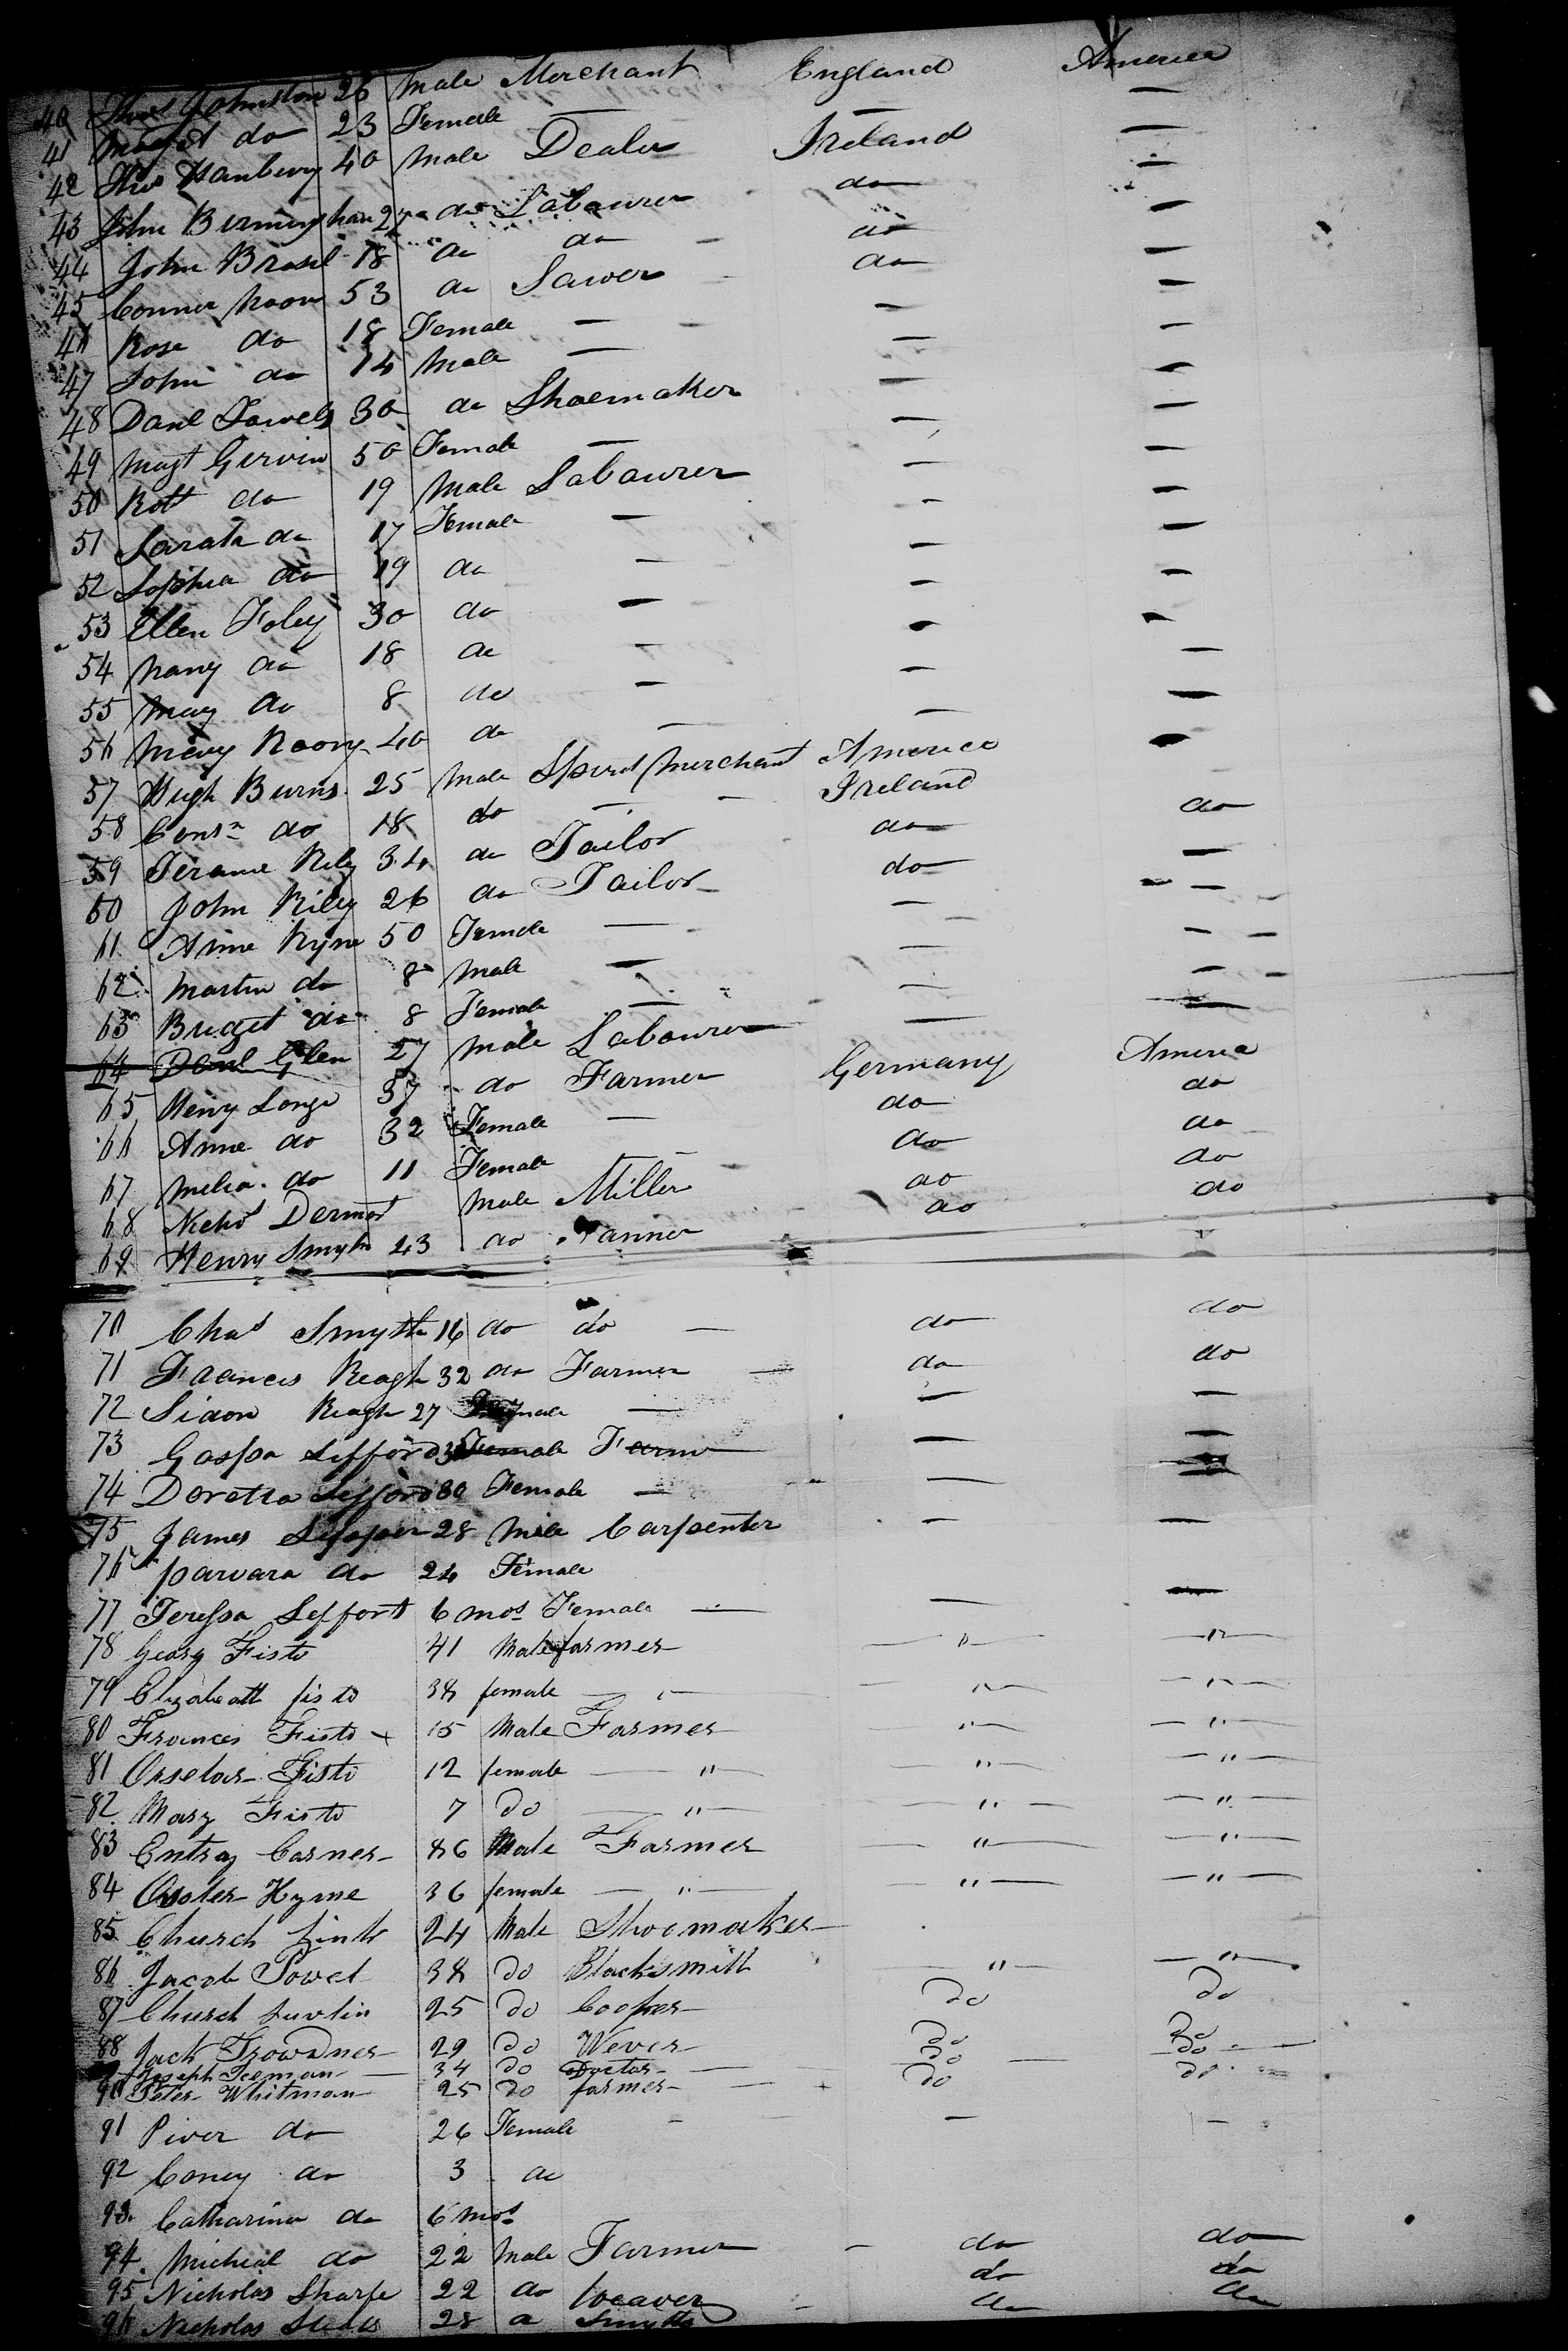 40 Thos Johnston 26 Male Merchant England America
41 Margt do 23 Female — — —
42 Thos Hanbury 40 Male Dealer Ireland —
43 John Birmingham 27 do Labourer do —
44 John Brasel 18 do do do —
45 Conner Noon 53 do Sawer do —
46 Rose do 18 Female — — —
47 John do 14 Male — — —
48 Danl 30 do Shoemaker — —
49 Magt Gervin 50 Female — — —
50 Robt do 19 Male Labourer — —
51 Sarah do 17 Female — — —
52 Sophia do 19 do — — —
53 Ellen Foley 30 do — — —
54 Nany do 18 do — — —
55 Mary do 8 do — — —
56 Mary Roony 40 do — — —
57 Hugh Burns 25 Male Spirit Merchant America —
58 do 18 do — Ireland
59 Riley 34 do Tailor do do
60 John Riley 26 do Tailor do —
61 Anne Ryne 50 Female — — —
62 Martin do 8 Male — — —
63 Bridget do 8 Female — — —
64 Danl Glen 27 Male Labourer — —
65 Henry Longe 37 do Farmer Germany America
66 Anne do 32 Female — do do
67 Melia do 11 Female — do do
68 Nichos Dermot Male Miller do do
69 Henry Smyth 43 do Tanner do do
70 Chas Smyth 16 do do — do do
71 Frances Reagh 32 do Farmer — do do
72 Sidon Reagh 27 Female — — —
73 Gaspa Lefford Male Farmer — —
74 Doretta Lefford 30 Female — — —
75 James 28 Male Carpenter — —
76 parvara do 24 Female
77 Teressa Leffort 6 mos Female — — —
78 Georg Fisto 41 Male farmer — " — — " —
79 Elizabeth fisto 38 female — " — — " — — " —
80 Frances Fisto x 15 Male Farmer — " — — " —
81 Orselar Fisto 12 female — " — — " — — " —
82 Mary Fisto 7 Do — " — — " — — " —
83 Entray Carner 86 Male Farmer — " — — " —
84 Hyrne 36 female — " — — " — — " —
85 Church Link 24 Male Shoemaker
86 Jacob Powel 38 Do Blacksmith — " — — " —
87 Church 25 Do Cooper Do Do
88 Jack Trowdner 29 Do Wever Do Do
Joseph Feeman 34 Do Doctor — Do — Do —
90 Peter Whitman 25 Do farmer — Do Do
91 Piver do 26 Female — — —
92 Coney do 3 do
93 Catharina do 6 mos
94 Micheal do 22 Male Farmer — do do
95 Nicholas Sharpe 22 do Weaver do do
96 Nicholas 28 do Smyth do do